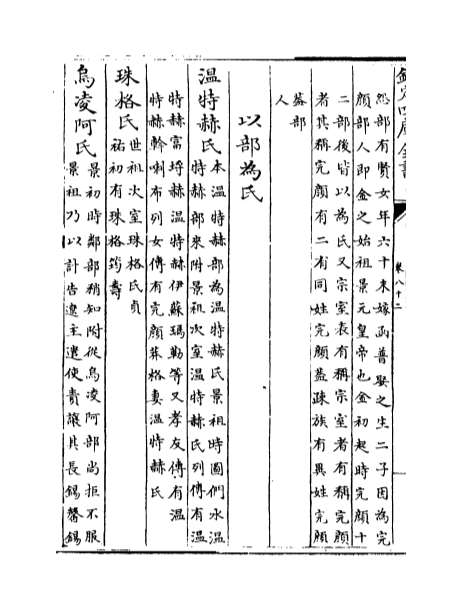 欽定四庫全書
卷八十二
怨部有賢女年六十未嫁函普娶之生二子因為完
顔部人即金之始祖景元皇帝也金初起時完顔十
二部後皆以為氏又宗室表有稱宗室者有稱完顔
者其稱完顔有二有同姓完顔蓋疎族有異姓完顔
蓋部
人
以部為氏
温特赫氏
本温特赫部為温特赫氏景祖時圖們水温
特赫部來附景祖次室温特赫氏列傳有温
特赫富埒赫温特赫伊蘇瑪勒等又孝友傳有温
特赫幹喇布列女傳有完顔莽格妻温特赫氏
珠格氏
世祖次室珠格氏貞
祐初有珠格筠壽
烏凌阿氏
景初時鄰部稍知附從烏凌阿部尚拒不服
景祖乃以計告遼主遣使責讓其長錫馨錫